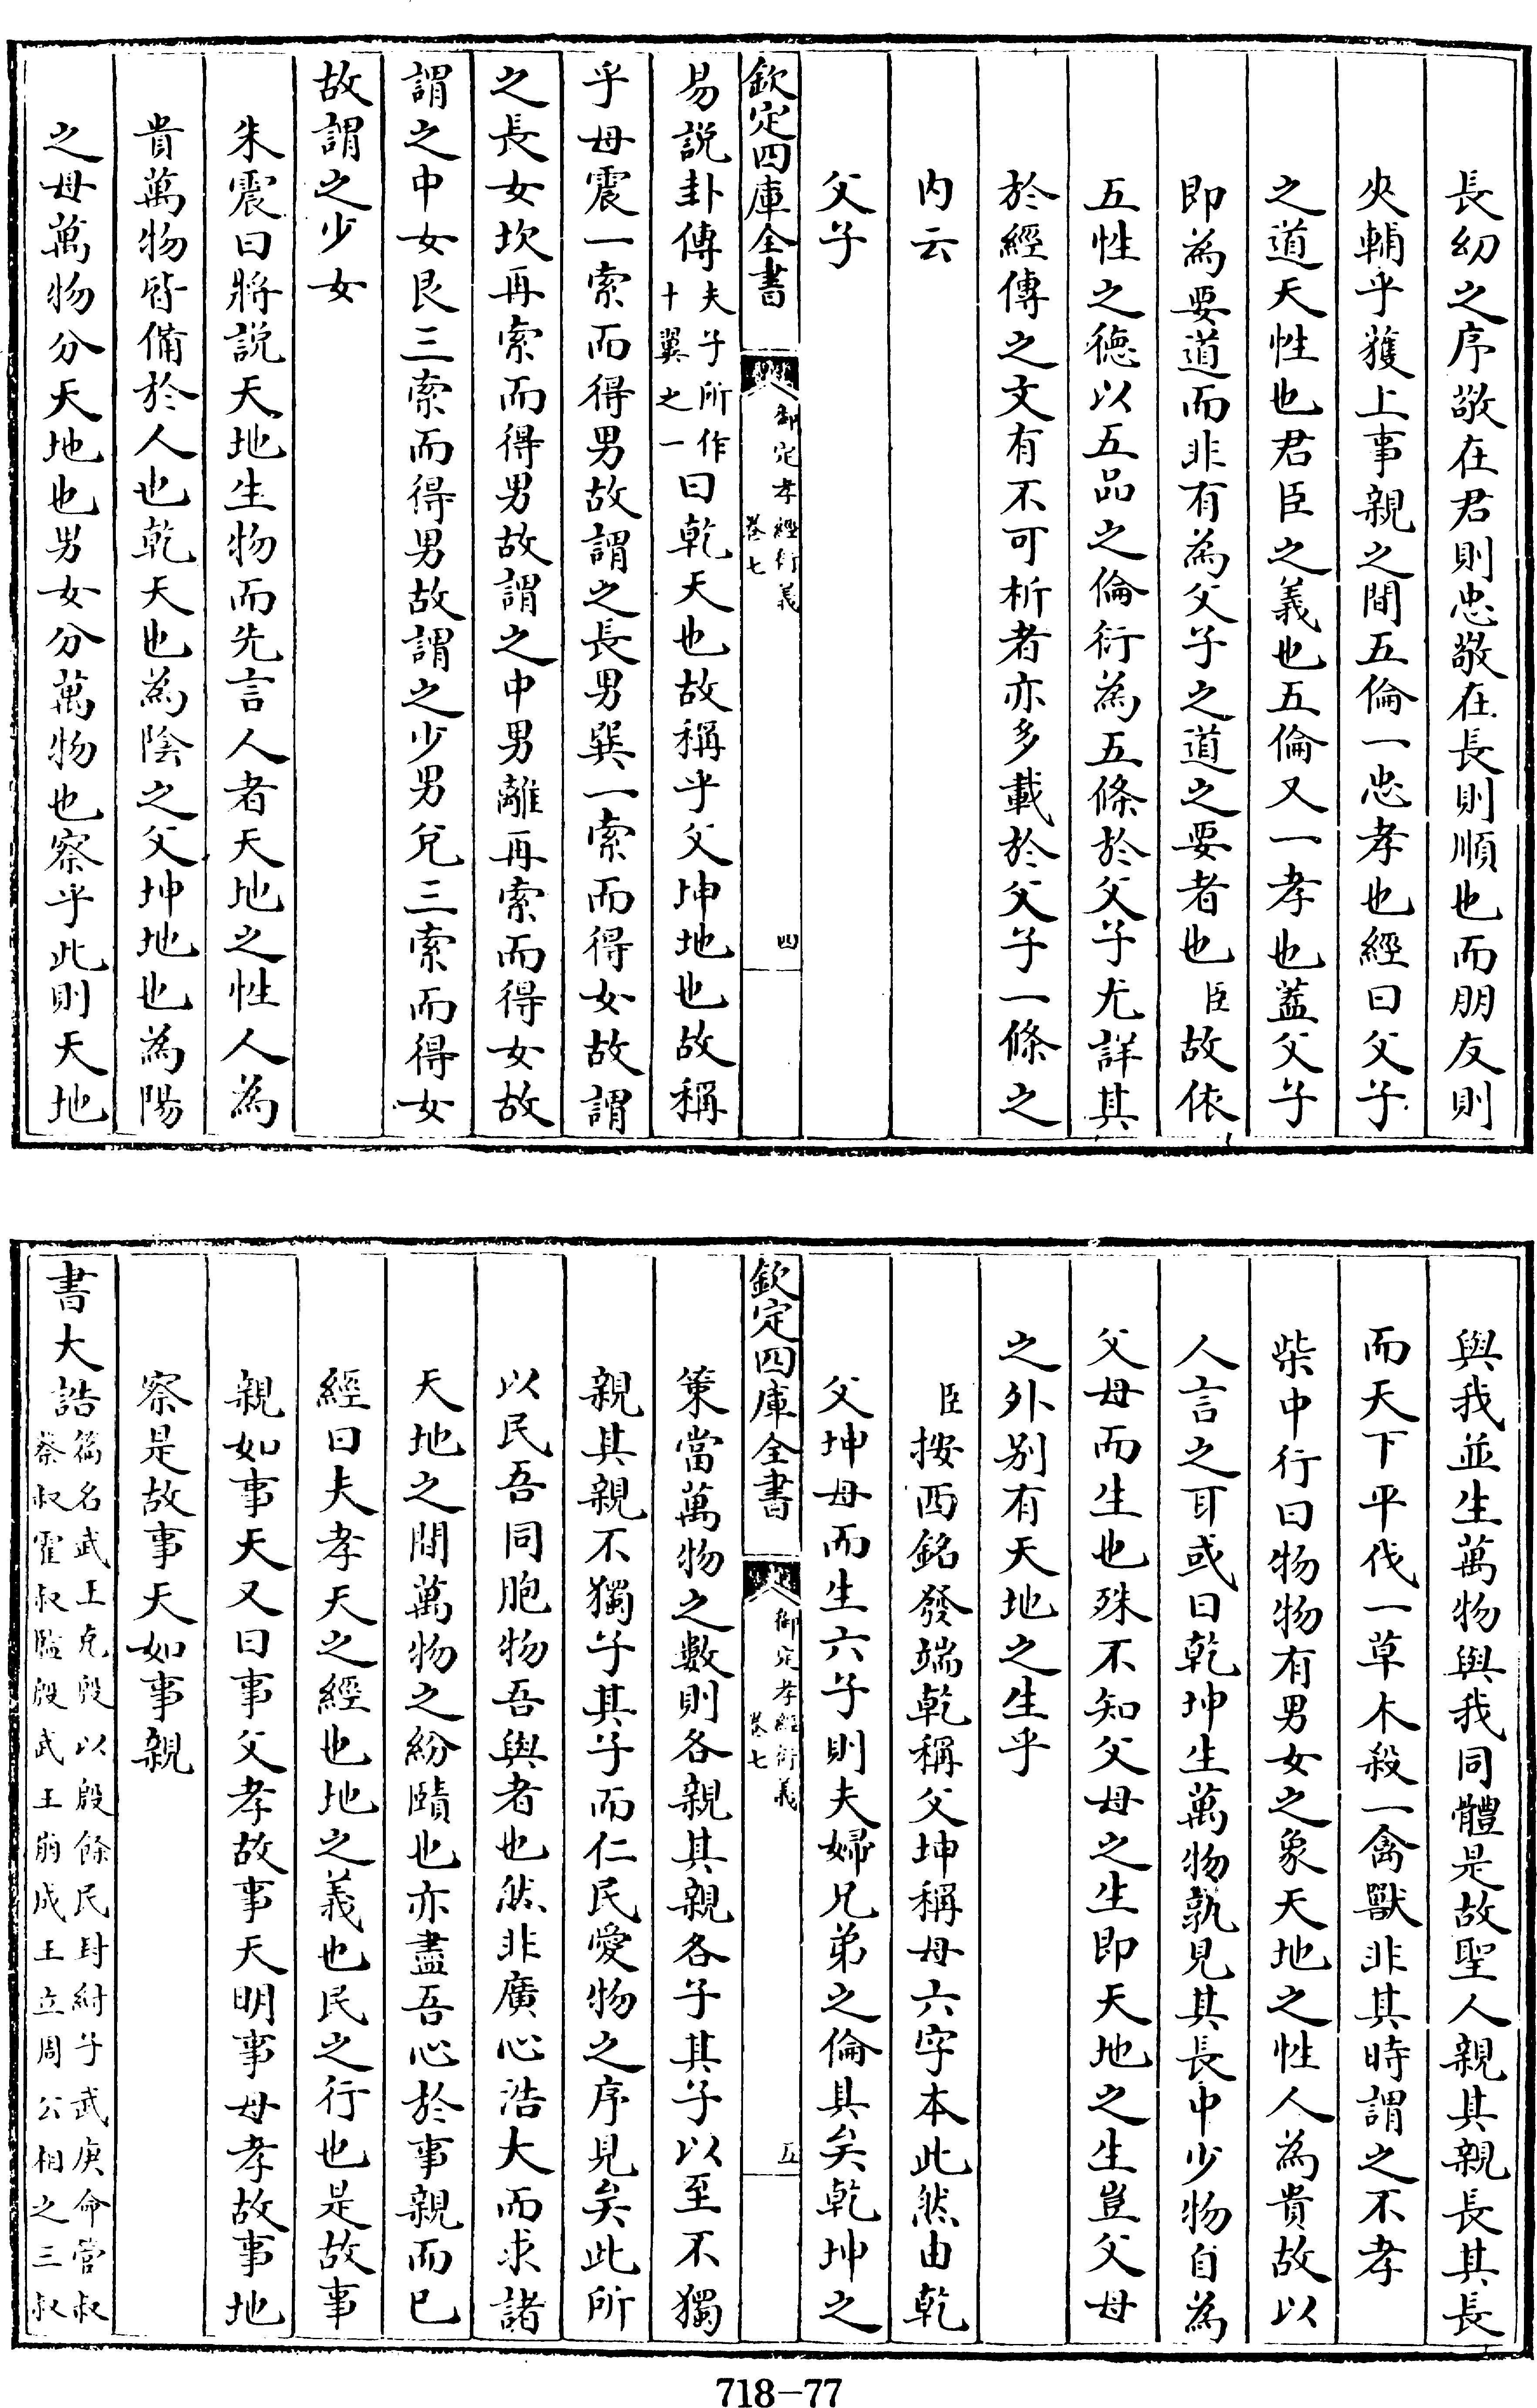 長幼之序敬在君則忠敬在長則順也而朋友則
夾輔乎獲上事親之間五倫一忠孝也經曰父子
之道天性也君臣之義也五倫又一孝也蓋父子
即為要道而非有為父子之道之要者也臣故依
五性之德以五品之倫衍為五條於父子尤詳其
於經傳之文有不可析者亦多載於父子一條之
內云
父子
欽定四庫全書
御定孝經衍義
卷七
四
易說卦傳夫子所作十翼之一曰乾天也故稱乎父坤地也故稱
乎母震一索而得男故謂之長男巽一索而得女故謂
之長女坎再索而得男故謂之中男離再索而得女故
謂之中女艮三索而得男故謂之少男兌三索而得女
故謂之少女
朱震曰將說天地生物而先言人者天地之性人為
貴萬物皆備於人也乾天也為陰之父坤地也為陽
之母萬物分天地也男女分萬物也察乎此則天地
與我並生萬物與我同體是故聖人親其親長其長
而天下平伐一草木殺一禽獸非其時謂之不孝
柴中行曰物物有男女之象天地之性人為貴故以
人言之耳或曰乾坤生萬物孰見其長中少物自為
父母而生也殊不知父母之生即天地之生豈父母
之外別有天地之生乎
臣按西銘發端乾稱父坤稱母六字本此然由乾
父坤母而生六子則夫婦兄弟之倫具矣乾坤之
欽定四庫全書
御定孝經衍義
卷七
五
策當萬物之數則各親其親各子其子以至不獨
親其親不獨子其子而仁民愛物之序見矣此所
以民吾同胞物吾與者也然非廣心浩大而求諸
天地之間萬物之紛賾也亦盡吾心於事親而已
經曰夫孝天之經也地之義也民之行也是故事
親如事天又曰事父孝故事天明事母孝故事地
察是故事天如事親
書大誥篇名武王克殷以殷餘民封紂子武庚命管叔
蔡叔霍叔監殷武王崩成王立周公相之三叔
718-77